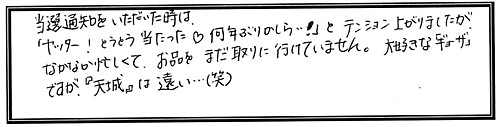 当選通知をいただいた時は、
「ヤッター！とうとう当たった♡何年ぶりかしら…!!」と テンション上がりましたが、
なかなか忙しくて、お品を まだ取りに行けていません。 大好きな『ギョーザ』
ですが、『天城』は 遠い…(笑)